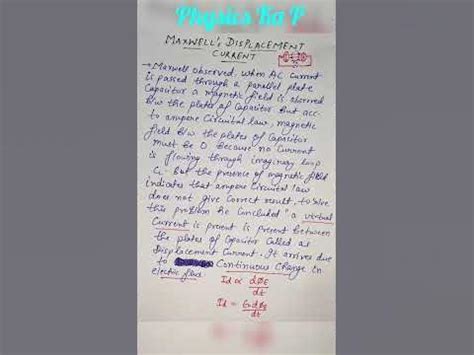 Physics Ka P
MAXWELL's DISPLACEMENT
CURRENT
→ Maxwell observed, when AC current
is passed through a parallel plate
Capacitor a magnetic field is observed
b/w the plates of Capacitor. But acc-
to ampere Circuital law, magnetic
field b/w the plates of Capacitor
must be 0 because no current
is flowing through imaginary loop
C₁. But the presence of magnetic field
indicates that ampere Circuital law
does not give correct result, to solve
this problem he concluded "a virtual
Current is present is present between
the plates of Capacitor called as
Displacement Current. It arrives due
to Continuous Change in
electric flux.
Id ∝ dØE/dt
Id = ε₀ dØE/dt